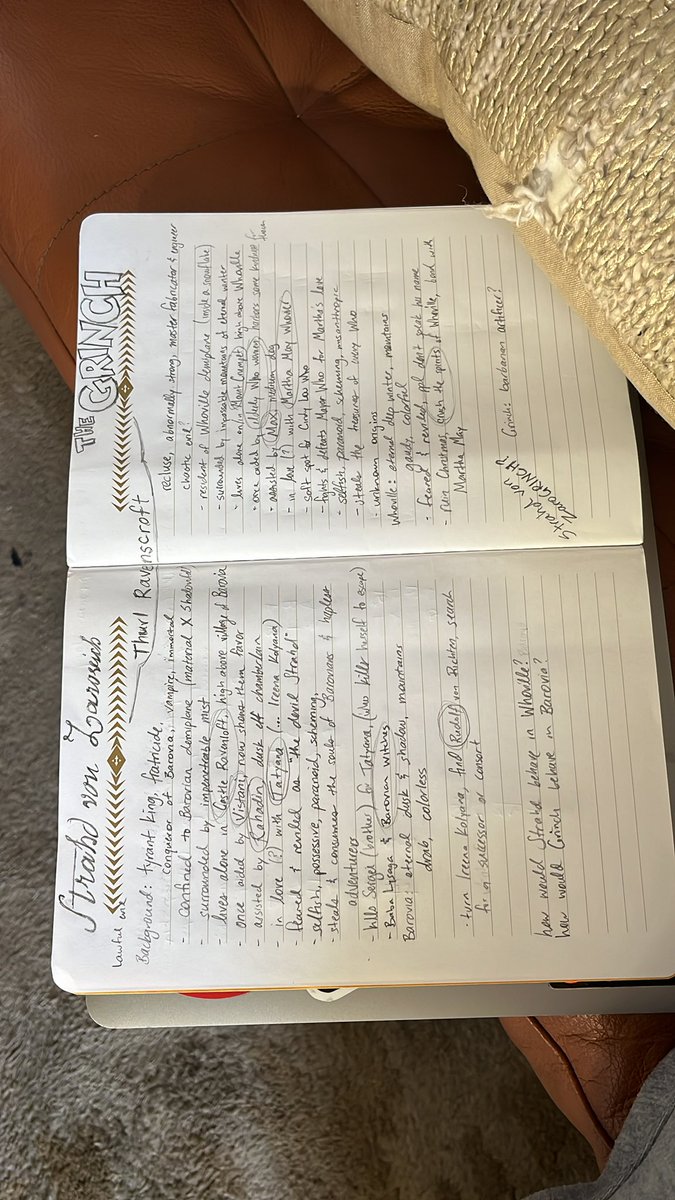 Strahd von Zarovich
Lawful evil
Background: tyrant king, fratricide,
conqueror of Barovia, vampire, immortal
- confined to Barovian demiplane (material X Shadowfell)
- surrounded by impenetrable mist
- lives alone in Castle Ravenloft, high above village of Barovia
- once aided by Vistani, now shows them favor
- assisted by Rahadin, dusk elf chamberlain
- in love (?) with Tatyana (... Ireena Kolyana)
feared & reviled as "the devil Strahd"
- selfish, possessive, paranoid, scheming,
- steals & consumes the souls of Barovians & hapless
adventurers
- kills Sergei (brother) for Tatyana (who kills herself to escape)
- Baba Lysaga & Barovian witches
Barovia: eternal dusk & shadow, mountains
drab, colorless
- turn Ireena Kolyana, find Rudolf van Richten, search
for a successor or consort
how would Strahd behave in Whoville?
how would Grinch behave in Barovia?
Thurl Ravenscroft
THE GRINCH
recluse, abnormally strong, master fabricator & engineer
chaotic evil?
- resident of Whoville demiplane (inside a snowflake)
- surrounded by impassable mountains & eternal winter
- lives alone on/in Mount Crumpit, high above Whoville
- once aided by elderly Who women, harbors some kindness for them
- assisted by Max, medium dog
- in love (?) with Martha May Whovier
- soft spot for Cindy Lou Who
- fights & defeats Mayor Who for Martha's love
- selfish, paranoid, scheming, misanthropic
- steals the treasures of every Who
- unknown origins
Whoville: eternal deep winter, mountains
gaudy, colorful
- feared & reviled, ppl don't speak his name
- ruin Christmas, crush the spirits of Whoville, bond with
Martha May
Strahd von
ZaroGRINCH?
Grinch: barbarian artificer?